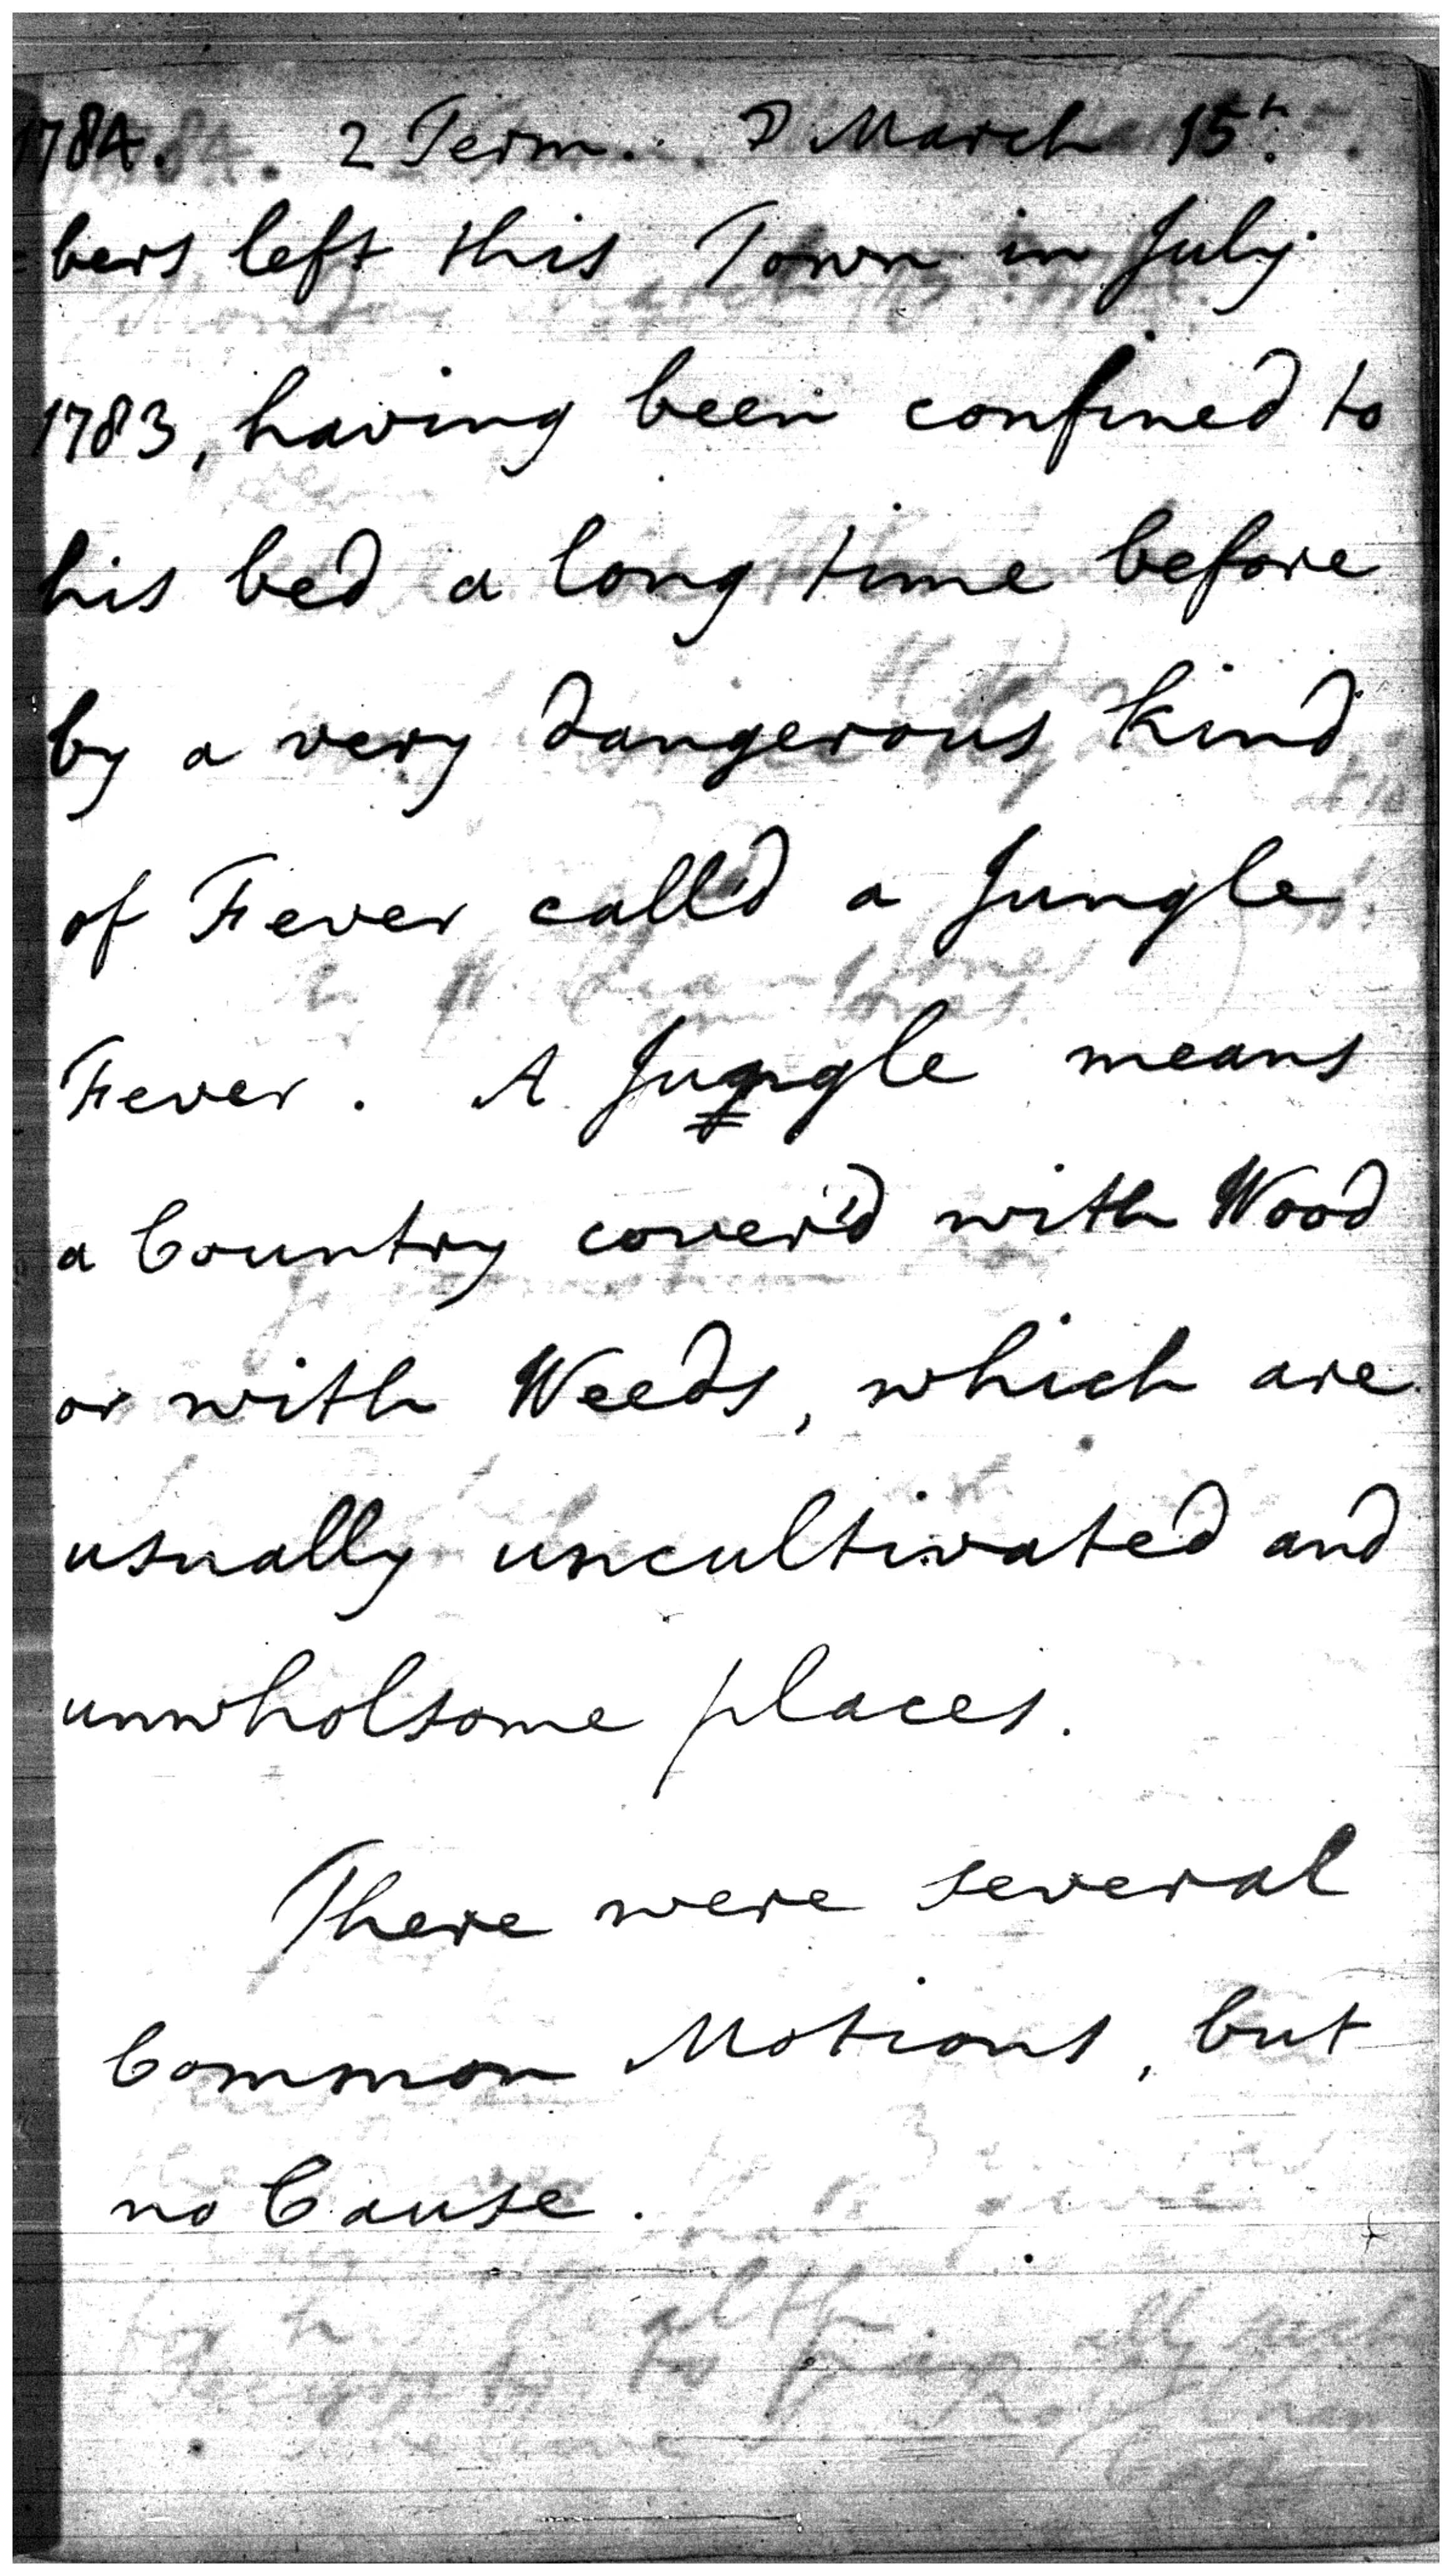 1784. 2 Term. ☽ March 15th.
bers left this Town in July
1783, having been confined to
his bed a long time before
by a very dangerous kind
of Fever call'd a Jungle
Fever. A Jungle means
a Country cover'd with Wood
or with Weeds, which are
usually uncultivated and
unwholsome places.
There were several
Common Motions, but
no Cause.